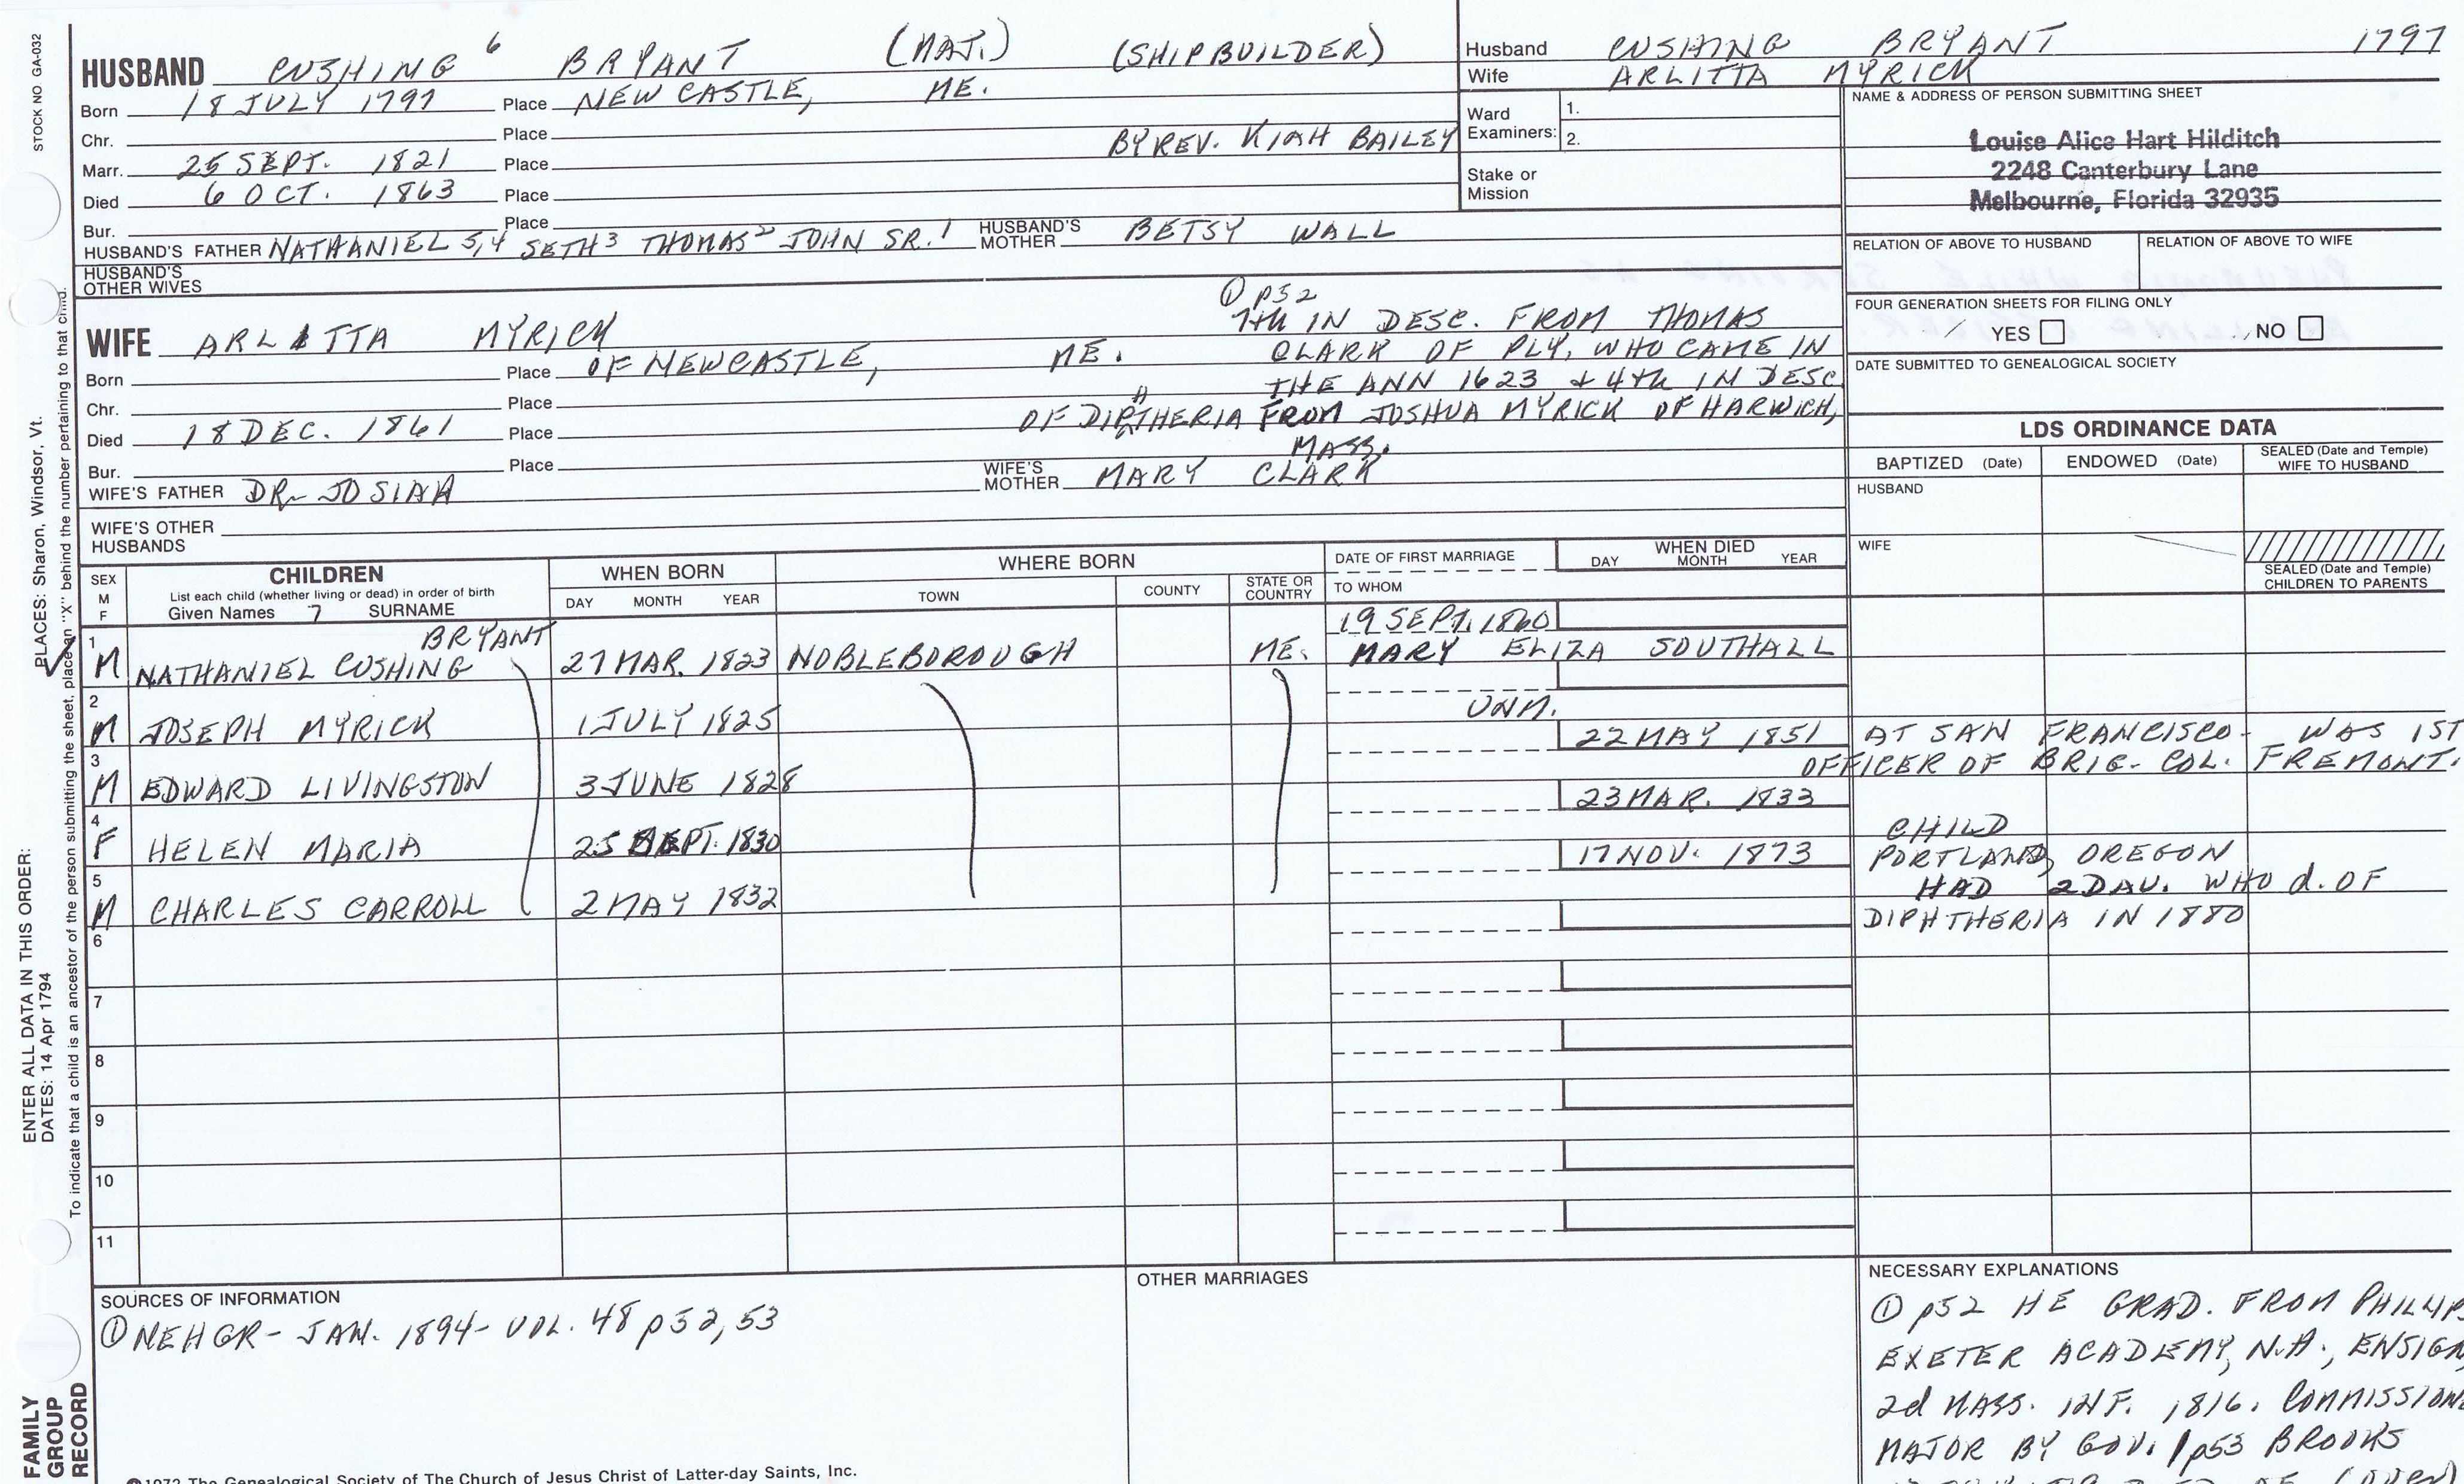 STOCK NO. GA-032
PLACES: Sharon, Windsor, Vt.
ENTER ALL DATA IN THIS ORDER:
DATES: 14 Apr 1794
To indicate that a child is an ancestor of the person submitting the sheet, place an "X" behind the number pertaining to that child.
FAMILY GROUP RECORD
HUSBAND CUSHING 6 BRYANT (MAJ.) (SHIPBUILDER)
Born 18 JULY 1797 Place NEW CASTLE, ME.
Chr. Place
BY REV. KIAH BAILEY
Marr. 25 SEPT. 1821 Place
Died 6 OCT. 1863 Place
Bur. Place
HUSBAND'S FATHER NATHANIEL 5,4 SETH 3 THOMAS 2 JOHN SR. 1 HUSBAND'S MOTHER BETSY WALL
HUSBAND'S OTHER WIVES
Husband CUSHING BRYANT 1797
Wife ARLITTA MYRICK
Ward Examiners: 1.
2.
Stake or Mission
NAME & ADDRESS OF PERSON SUBMITTING SHEET
Louise Alice Hart Hilditch
2248 Canterbury Lane
Melbourne, Florida 32935
RELATION OF ABOVE TO HUSBAND RELATION OF ABOVE TO WIFE
FOUR GENERATION SHEETS FOR FILING ONLY
YES NO
DATE SUBMITTED TO GENEALOGICAL SOCIETY
WIFE ARLITTA MYRICK
Born Place OF NEWCASTLE, ME.
Chr. Place
Died 18 DEC. 1861 Place OF DIPTHERIA
H
Bur. Place
① p52
7th IN DESC. FROM THOMAS
CLARK OF PLY, WHO CAME IN
THE ANN 1623 & 4th IN DESC
FROM JOSHUA MYRICK OF HARWICH,
MASS.
WIFE'S FATHER DR. JOSIAH WIFE'S MOTHER MARY CLARK
WIFE'S OTHER HUSBANDS
LDS ORDINANCE DATA
BAPTIZED (Date) ENDOWED (Date) SEALED (Date and Temple) WIFE TO HUSBAND
HUSBAND
WIFE
SEALED (Date and Temple) CHILDREN TO PARENTS
SEX M F CHILDREN WHEN BORN WHERE BORN DATE OF FIRST MARRIAGE WHEN DIED
List each child (whether living or dead) in order of birth
Given Names 7 SURNAME DAY MONTH YEAR TOWN COUNTY STATE OR COUNTRY TO WHOM DAY MONTH YEAR
1 BRYANT 19 SEPT. 1860
M NATHANIEL CUSHING 27 MAR. 1823 NOBLEBOROUGH ME. MARY ELIZA SOUTHALL
2 UNM.
M JOSEPH MYRICK 1 JULY 1825 22 MAY 1851 AT SAN FRANCISCO - WAS 1ST
OFFICER OF BRIG - COL. FREMONT.
3
M EDWARD LIVINGSTON 3 JUNE 1828 23 MAR. 1833
CHILD
4
F HELEN MARIA 25 SEPT. 1830 17 NOV. 1873 PORTLAND, OREGON
HAD 2 DAU. WHO d. OF
5
M CHARLES CARROLL 2 MAY 1832
DIPHTHERIA IN 1880
6
7
8
9
10
11
SOURCES OF INFORMATION
① NEHGR - JAN. 1894 - VOL. 48 p52,53
OTHER MARRIAGES
NECESSARY EXPLANATIONS
① p52 HE GRAD. FROM PHILLIPS
EXETER ACADEMY, N.H., ENSIGN,
2d MASS. INF. 1816. COMMISSION
MAJOR BY GOV. p53 BROOKS
1972 The Genealogical Society of The Church of Jesus Christ of Latter-day Saints, Inc.